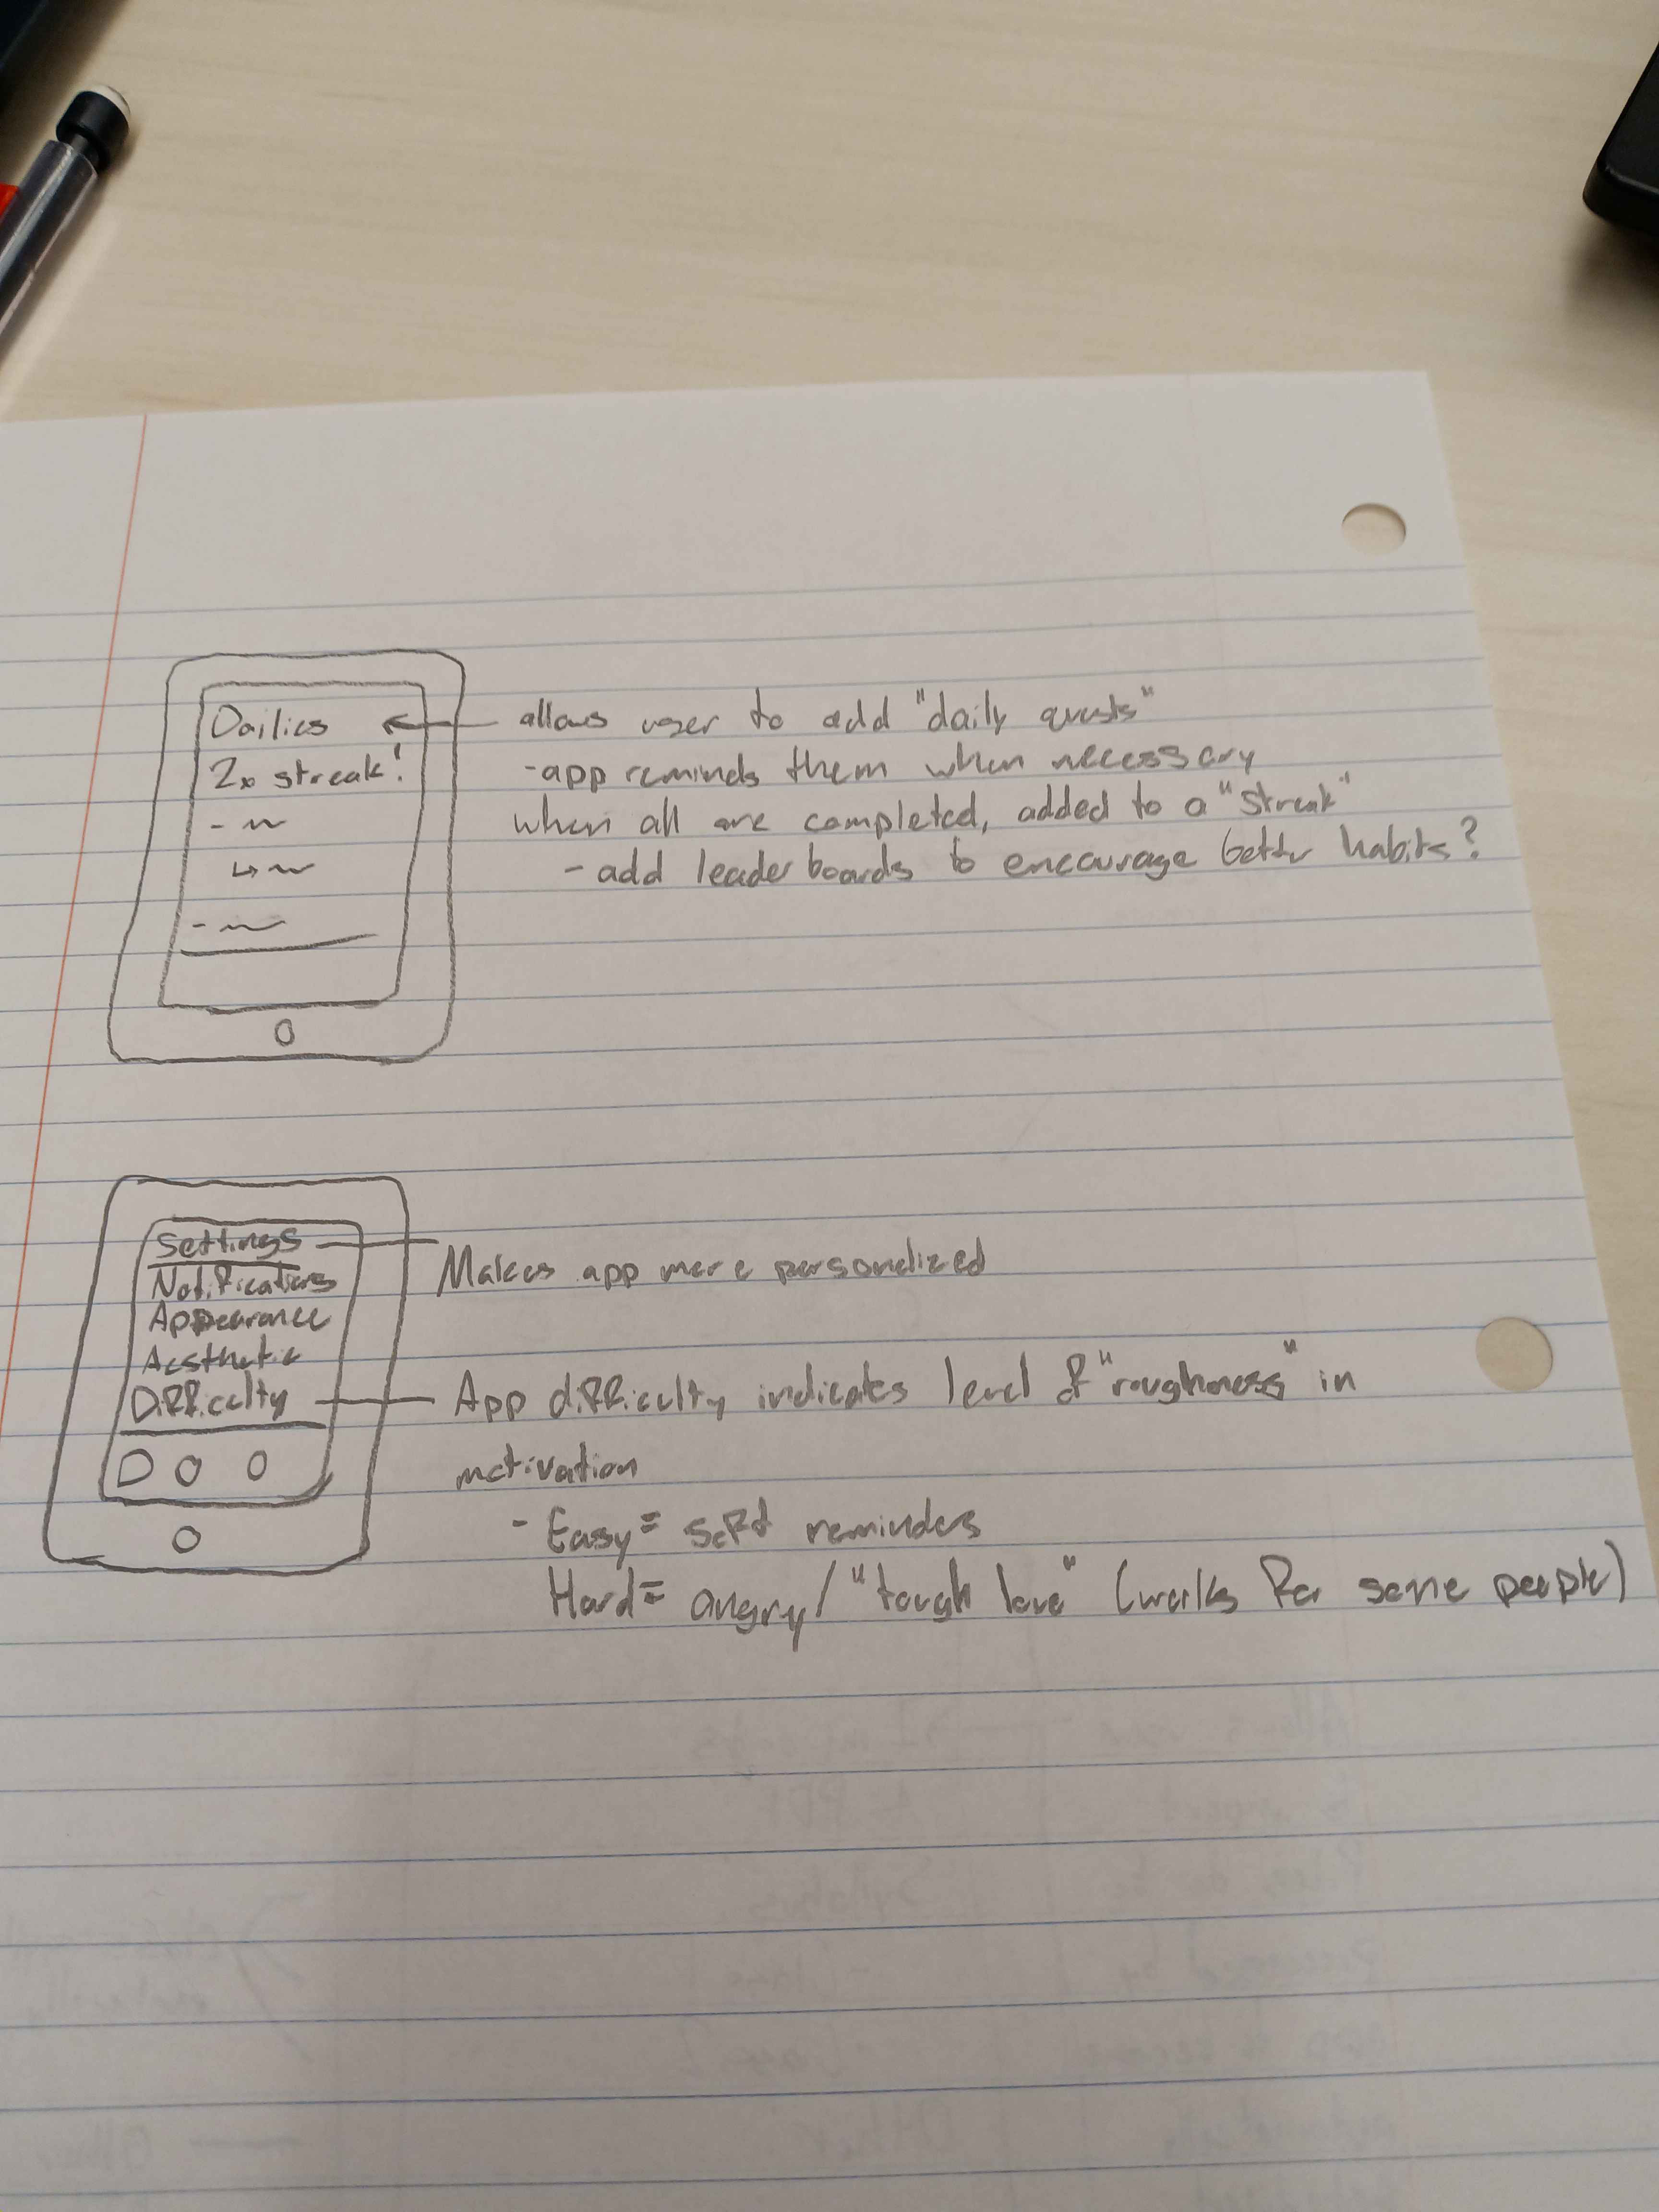 Dailies
2x streak!
allows user to add "daily quests"
-app reminds them when necessary
when all are completed, added to a "streak"
- add leaderboards to encourage better habits?
Settings
Notifications
Appearance
Aesthetic
Difficulty
Makes app more personalized
App difficulty indicates level of "roughness" in
motivation
- Easy= soft reminders
Hard= angry/"tough love" (works for some people)